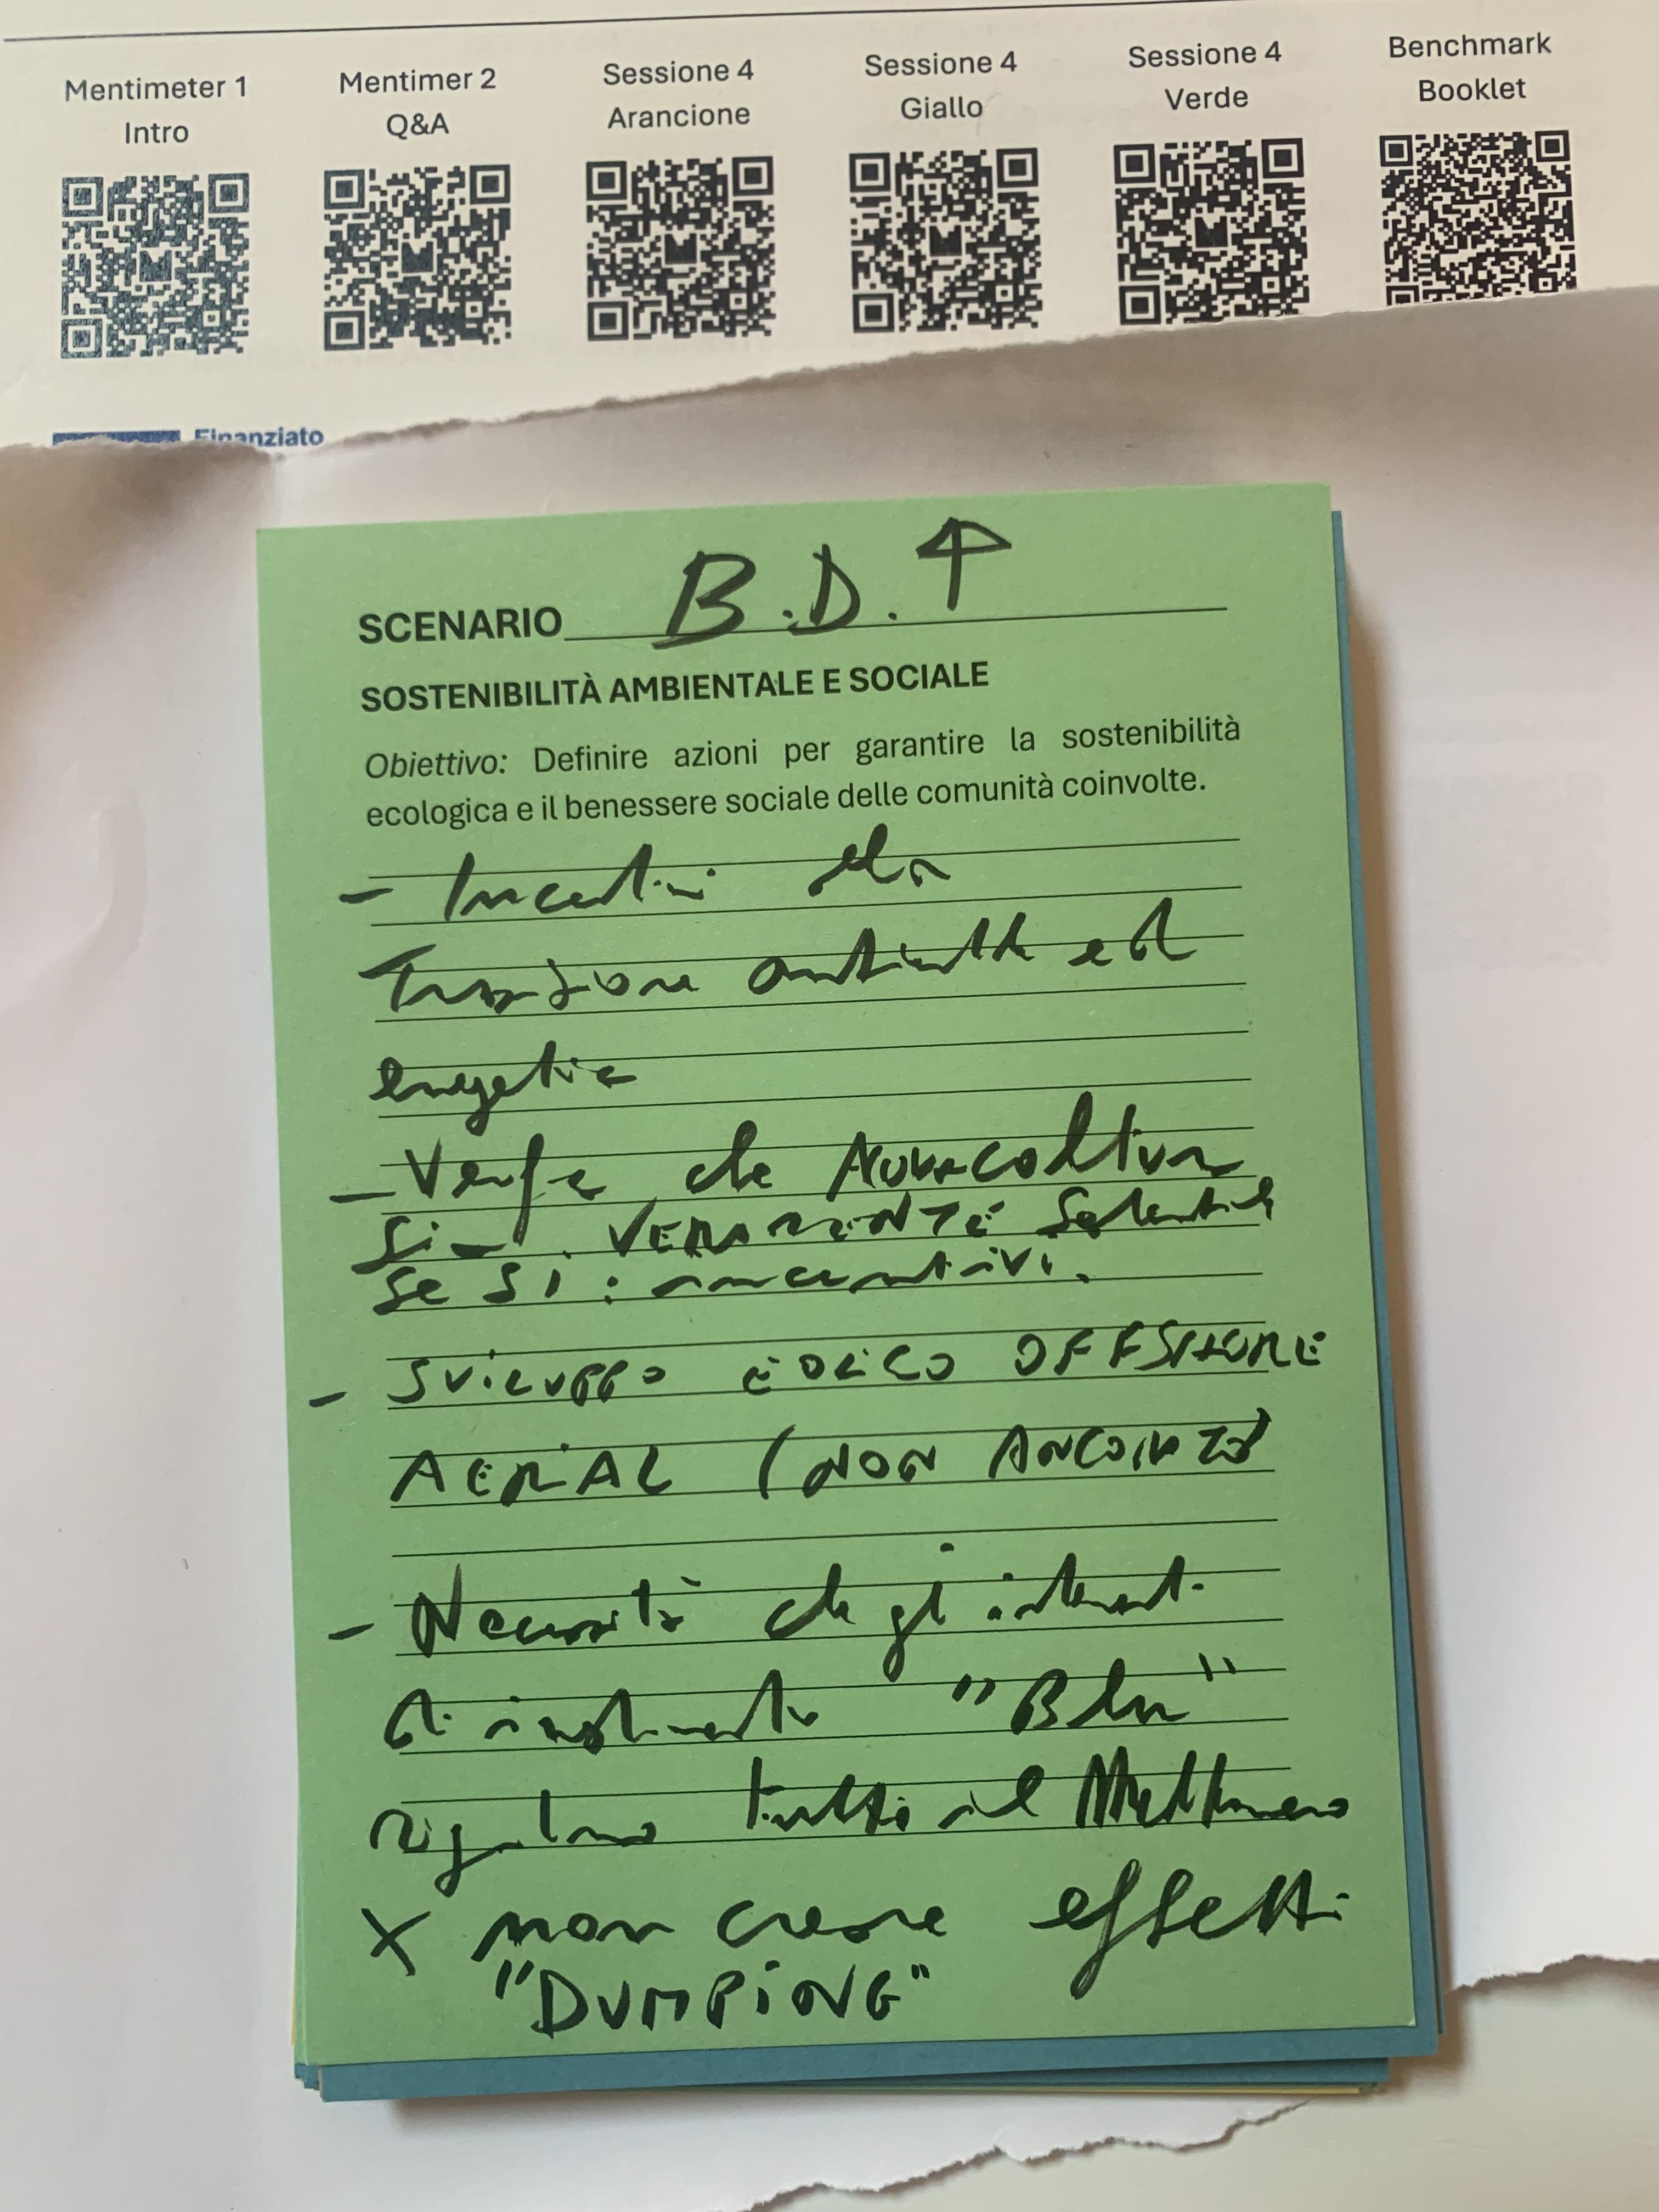 Mentimeter 1
Intro
Mentimer 2
Q&A
Sessione 4
Arancione
Sessione 4
Giallo
Sessione 4
Verde
Benchmark
Booklet
Finanziato
SCENARIO B.D.↑
SOSTENIBILITÀ AMBIENTALE E SOCIALE
Obiettivo: Definire azioni per garantire la sostenibilità
ecologica e il benessere sociale delle comunità coinvolte.
- Incentivi alla
Transizione ambientale ed
energetica
- che
VERAMENTE sostenibile
se sì: incentivi.
- SVILUPPO EOLICO OFFSHORE
AERIAL (NON ANCORATO)
- Necessità che gli
"Blu"
tutto il Mediterraneo
X non creare effetti
"DUMPING"